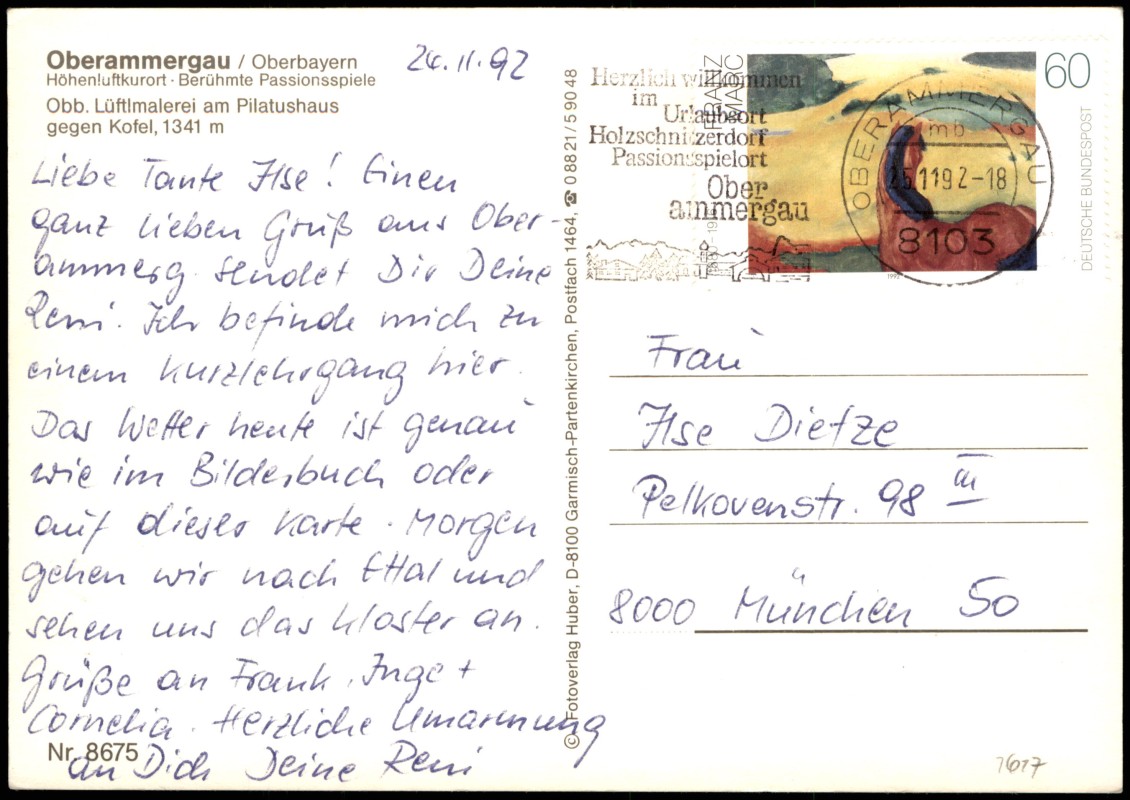 Oberammergau / Oberbayern
Höhenluftkurort · Berühmte Passionsspiele
Obb. Lüftlmalerei am Pilatushaus
gegen Kofel, 1341 m
24.11.92
Liebe Tante Ilse! Einen
ganz lieben Gruß aus Ober-
ammerg. sendet Dir Deine
Reni. Ich befinde mich zu
einem Kurzlehrgang hier.
Das Wetter heute ist genau
wie im Bilderbuch oder
auf dieser Karte. Morgen
gehen wir nach Ettal und
sehen uns das Kloster an.
Grüße an Frank, Inge +
Cornelia. Herzliche Umarmung
an Dich Deine Reni
Nr. 8675
© Fotoverlag Huber, D-8100 Garmisch-Partenkirchen, Postfach 1464, ☎ 08821/59048
Herzlich willkommen
im
Urlaubsort
Holzschnitzerdorf
Passionsspielort
Ober
ammergau
FRANZ
MARC
60
DEUTSCHE BUNDESPOST
1992
OBERAMMERGAU
mb
25.11.92-18
8103
Frau
Ilse Dietze
Pelkovenstr. 98 III
8000 München 50
1617